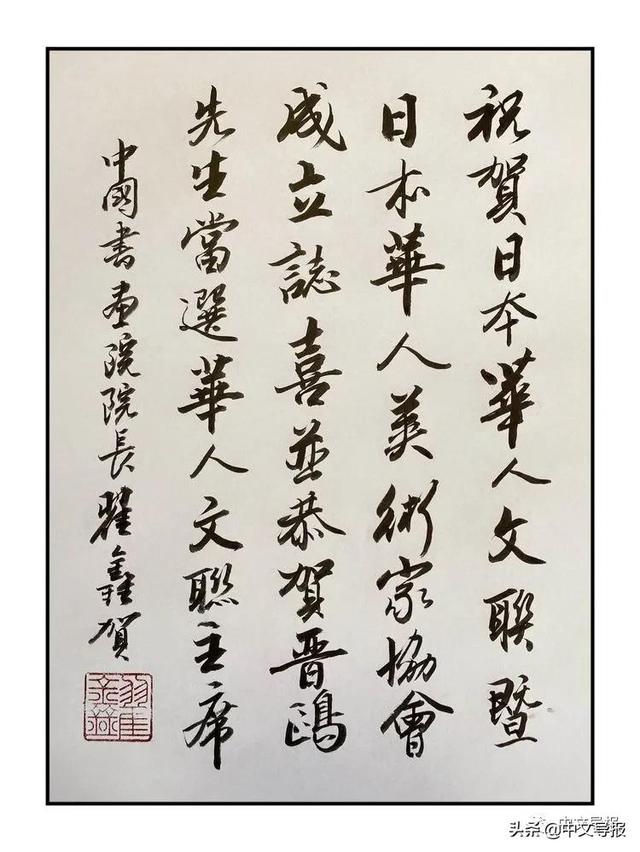 祝賀日本華人文聯暨
日本華人美術家協會
成立誌喜並恭賀晋鷗
先生當選華人文聯主席
中國書畫院院長翟鑫賀
中文导报
头条@中文导报